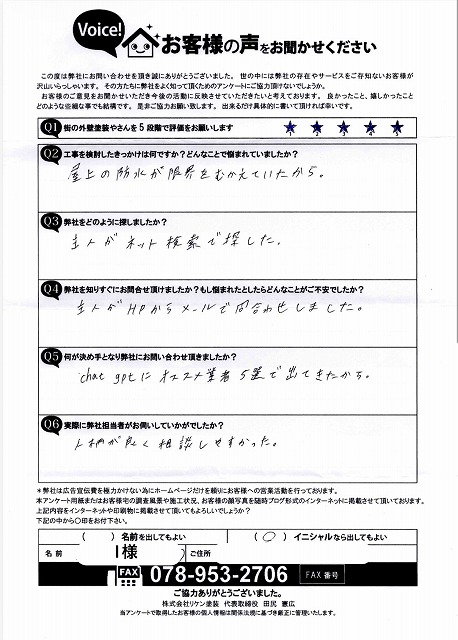 Voice!
お客様の声をお聞かせください
この度は弊社にお問い合わせを頂き誠にありがとうございました。 世の中には弊社の存在やサービスをご存知ないお客様が
沢山いらっしゃいます。 その方たちに弊社をよく知って頂くためのアンケートにご協力頂けないでしょうか。
お客様のご意見をお聞かせいただき今後の活動に反映させていただきたいと考えております。 良かったこと、嬉しかったこと
どのような些細な事でも結構です。 是非ご協力お願い致します。 出来るだけ具体的に書いて頂ければ幸いです。
Q1 街の外壁塗装やさんを5段階で評価をお願いします
1 2 3 4 5
Q2 工事を検討したきっかけは何ですか?どんなことで悩まれていましたか?
屋上の防水が限界をむかえていたから。
Q3 弊社をどのように探しましたか?
主人がネット検索で探した。
Q4 弊社を知りすぐにお問合せ頂けましたか?もし悩まれたとしたらどんなことがご不安でしたか?
主人がHPからメールで問合わせしました。
Q5 何が決め手となり弊社にお問い合わせ頂きましたか?
chat gptにオススメ業者5選で出てきたから。
Q6 実際に弊社担当者がお伺いしていかがでしたか?
人柄が良く相談しやすかった。
*弊社は広告宣伝費を極力かけない為にホームページだけを頼りにお客様への営業活動を行っております。
本アンケート用紙またはお客様宅の調査風景や施工状況、お客様の顔写真を随時ブログ形式のインターネットに掲載させて頂いております。
上記内容をインターネットや印刷物に掲載させて頂いてもよろしいでしょうか?
下記の中から〇印をお付下さい。
( ) 名前を出してもよい (〇) イニシャルなら出してもよい
名前 I様 ご住所
FAX 078-953-2706 FAX番号
ご協力ありがとうございました。
株式会社リケン塗装 代表取締役 田尻 憲広
当アンケートで取得したお客様の個人情報は関係法規に基づき厳正に管理いたします。